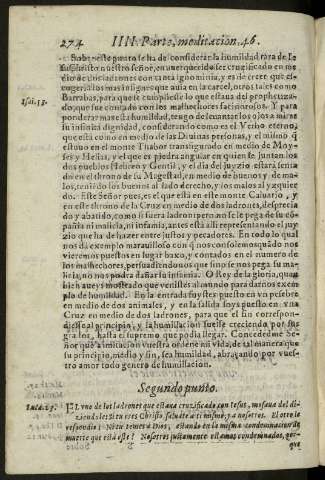 274 IIII. Parte, meditacion. 46.
Sobre este punto se ha de considerar la humildad rara de Ie
su Christo nuestro señor, en auer querido ser crucificado en me
dio de dos ladrones con tanta ignominia, y es de creer que es-
cogerian los mas insignes que auia en la carcel, otros tales como
Barrabas, para que se cumpliesse lo que estaua del prophetizado,
que fue contado con los malhechores facinorosos. Y para
ponderar mas esta humildad, tengo de leuantar los ojos a mirar
su infinita dignidad, considerando como es el Verbo eterno,
que està como en medio de las Diuinas personas, y el mismo q̃
estuuo en el monte Thabor transfigurado en medio de Moy-
ses y Helias, y el que es piedra angular en quien se juntan los
dos pueblos Hebreo y Gentil, y el dia del juyzio estarà senta
do en el throno de su Magestad, en medio de buenos y de ma
los, teniendo los buenos al lado derecho, y los malos al yzquier
do. Este Señor pues, es el que està en este monte Caluario, y
en este throno de la Cruz en medio de dos ladrones, desprecia
do y abatido, como si fuera ladron: pero no se le pega de su com
pañia ni malicia, ni infamia, antes està alli representando el juy
zio que ha de hazer entre justos y pecadores. En todo lo qual
nos da exemplo marauilloso con q̃ nos consolemos quãdo nos
vieremos puestos en lugar baxo, y contados en el numero de
los malhechores, persuadiendonos que sino se nos pega su ma
licia, no nos podrà dañar su infamia. O Rey de la gloria, quan
bien aueys mostrado que venistes al mundo para darnos exem
plo de humildad. En la entrada fuystes puesto en vn pesebre
en medio de dos animales, y en la salida soys puesto en vna
Cruz en medio de dos ladrones, para que el fin correspon-
diesse al principio, y la humillacion fuesse creciendo por sus
grados, hasta el supremo que podia llegar. Concededme Se-
ñor que a imitacion vuestra ordene mi vida, de tal manera que
su principio, medio y fin, sea humildad, abraçando por vues-
tro amor todo genero de humillacion.
Segundo punto.
El vno de los ladrones que estaua crucificado con Iesus, mofaua del di-
ziendo: Si tu eres Christo saluate a ti mismo, y a nosotros. El otro le
respondio: Ni tu temes a Dios, estando en la misma condemnacion de
muerte que està este? Nosotros justamente estamos condemnados, por-
que
Isai. 53.
Luc. 23.